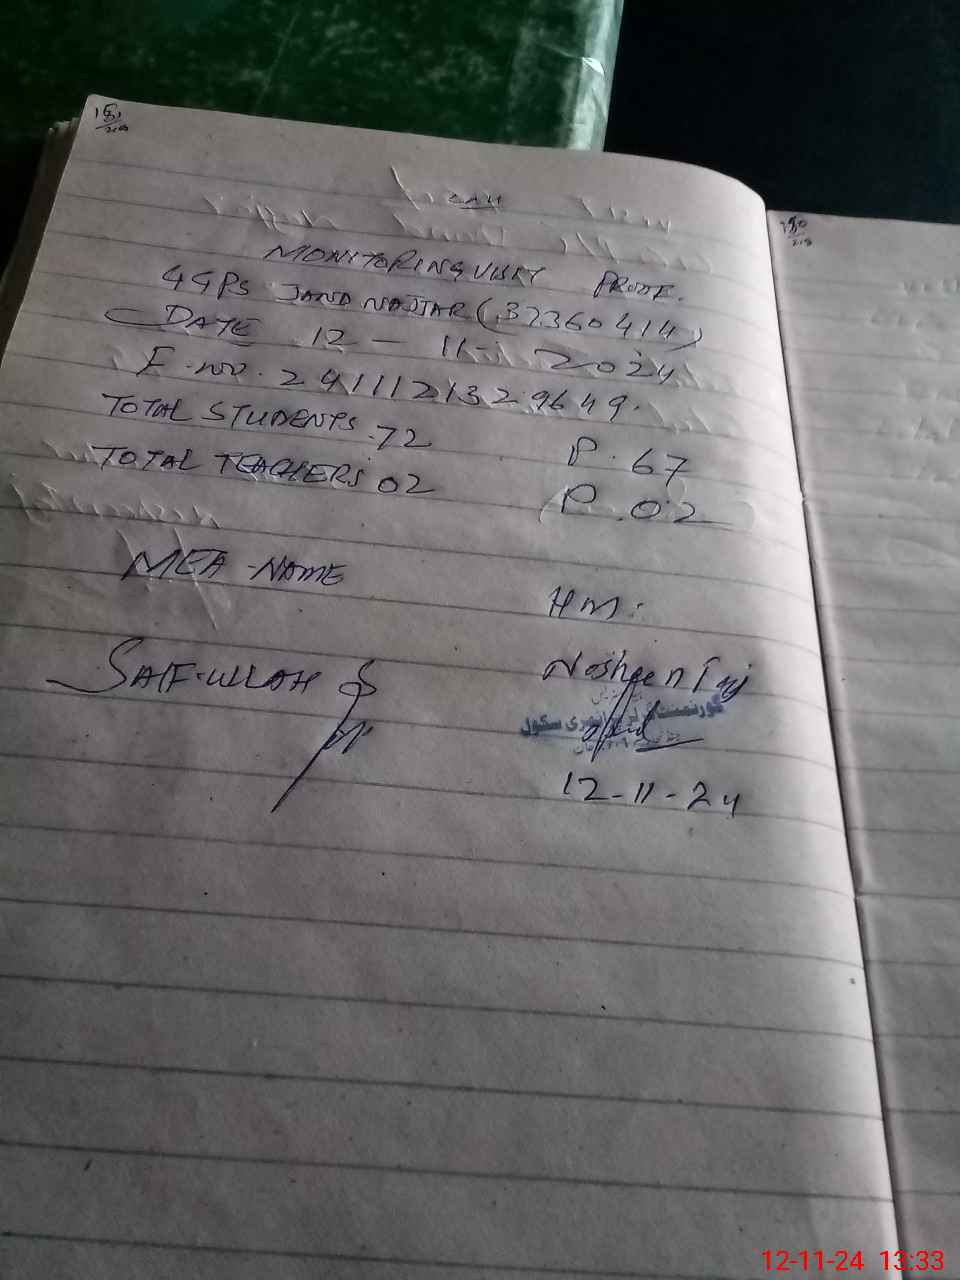 MONITORING VISIT PROOF.
GGPS JAND NAJJAR (37360414)
DATE 12 - 11 - 2024
E.no. 2411121329649.
TOTAL STUDENTS 72 P. 67
TOTAL TEACHERS 02 P. 02
MEA NAME
HM:
SAIF-ULLAH
Nosheen Taj
گورنمنٹ گرلز پرائمری سکول
12-11-24
12-11-24 13:33